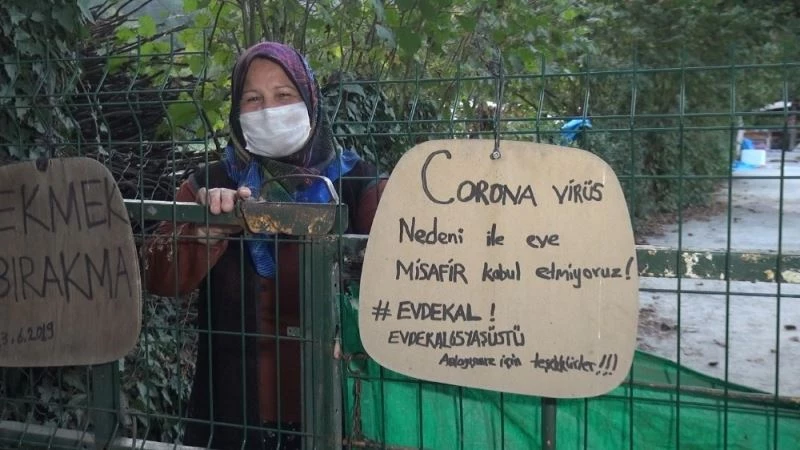 EKMEK
BIRAKMA
3.6.2019
CORONA VİRÜS
Nedeni ile eve
MİSAFİR kabul etmiyoruz!
# EVDEKAL!
EVDEKAL65YAŞÜSTÜ
için teşekkürler!!!